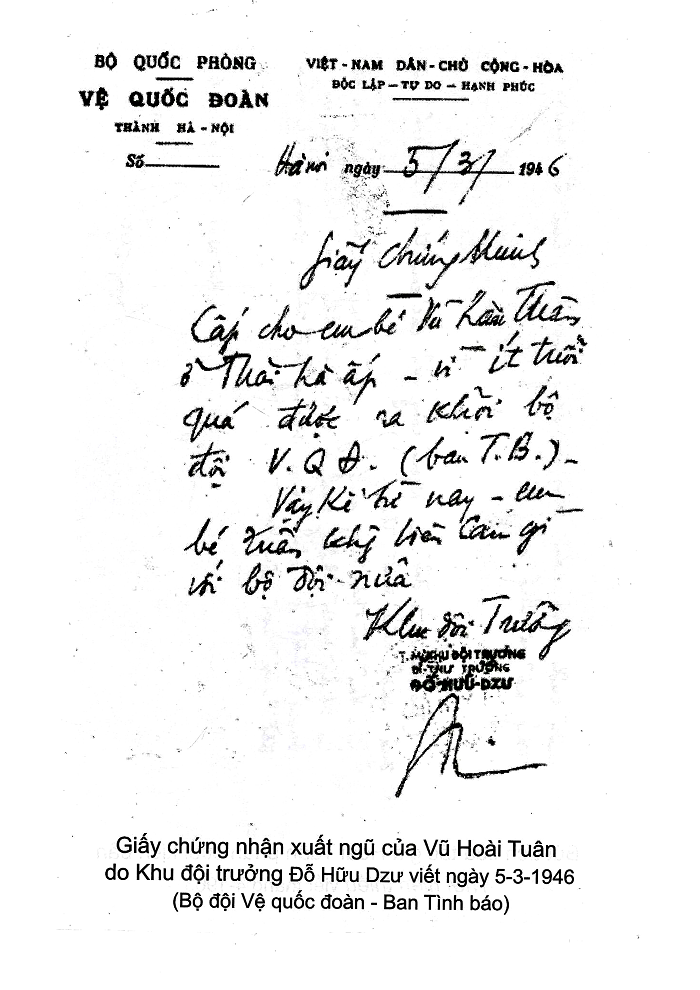 BỘ QUỐC PHÒNG
VỆ QUỐC ĐOÀN
THÀNH HÀ - NỘI
Số
VIỆT - NAM DÂN - CHỦ CỘNG - HÒA
ĐỘC LẬP - TỰ DO - HẠNH PHÚC
Hà nội ngày 5/3/ 1946
Giấy chứng minh
Cấp cho em bé Vũ Hoài Tuân
ở Thái hà ấp - vì ít tuổi
quá được ra khỏi bộ
đội V.Q.Đ. (ban T.B.) -
Vậy kể từ nay - em
bé Tuân không liên can gì
với bộ đội nữa
Khu đội Trưởng
KHU ĐỘI TRƯỞNG
TRƯỞNG
ĐỖ-HỮU-DZƯ
Giấy chứng nhận xuất ngũ của Vũ Hoài Tuân
do Khu đội trưởng Đỗ Hữu Dzư viết ngày 5-3-1946
(Bộ đội Vệ quốc đoàn - Ban Tình báo)